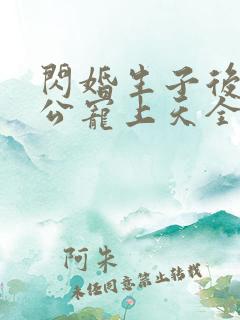 閃婚生子後
公寵上天全
阿朱
未經同意禁止轉載